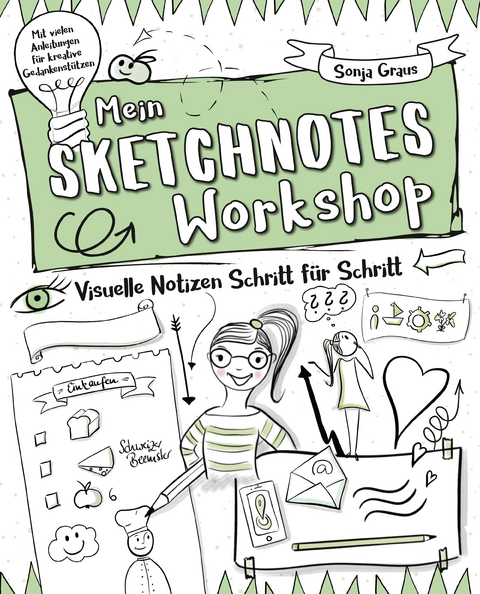 Mit vielen
Anleitungen
für kreative
Gedankenstützen
Sonja Graus
Mein
SKETCHNOTES
Workshop
Visuelle Notizen Schritt für Schritt
???
Einkaufen
Schweizer
Beemster
6
@